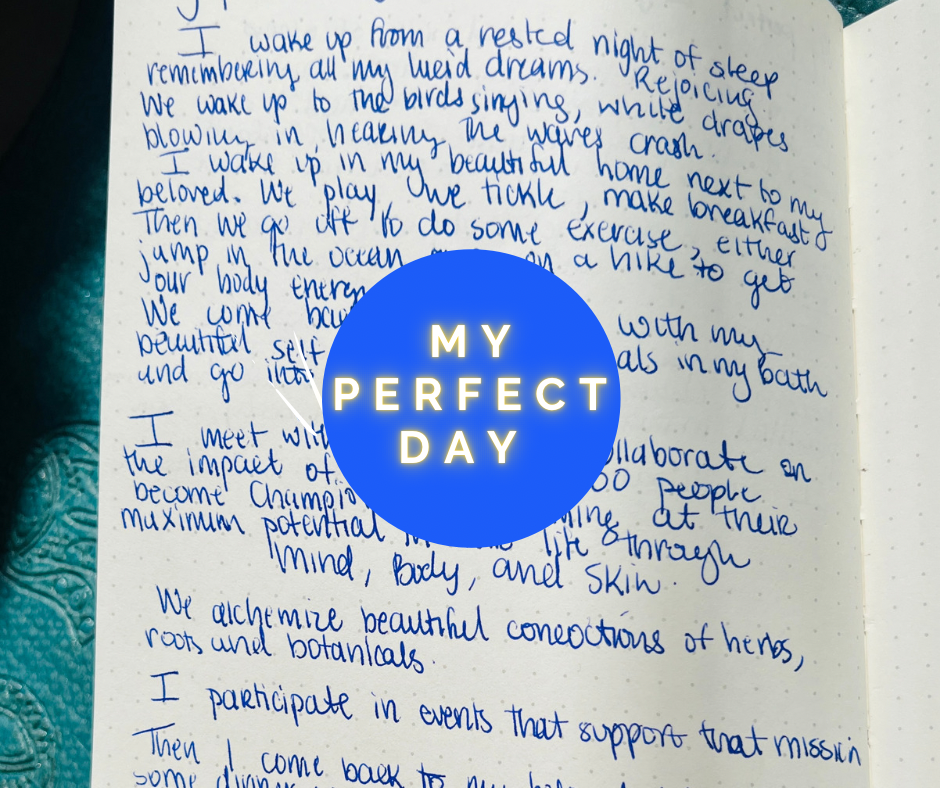 I wake up from a rested night of sleep
remembering all my weid dreams. Rejoicing
We wake up to the birds singing, white drapes
blowing in, hearing the waves crash.
I wake up in my beautiful home next to my
beloved. We play, we tickle, make breakfast &
Then we go off to do some exercise, either
jump in the ocean on a hike to get
our body energ
We come with my
beautiful self als in my bath
and go
MY
PERFECT
DAY
I meet with ollaborate on
the impact of 00 people
become Champio ming at their
maximum potential life through
Mind, Body, and Skin.
We alchemize beautiful concoctions of herbs,
roots and botanicals.
I participate in events that support that mission
Then I come back to my
some